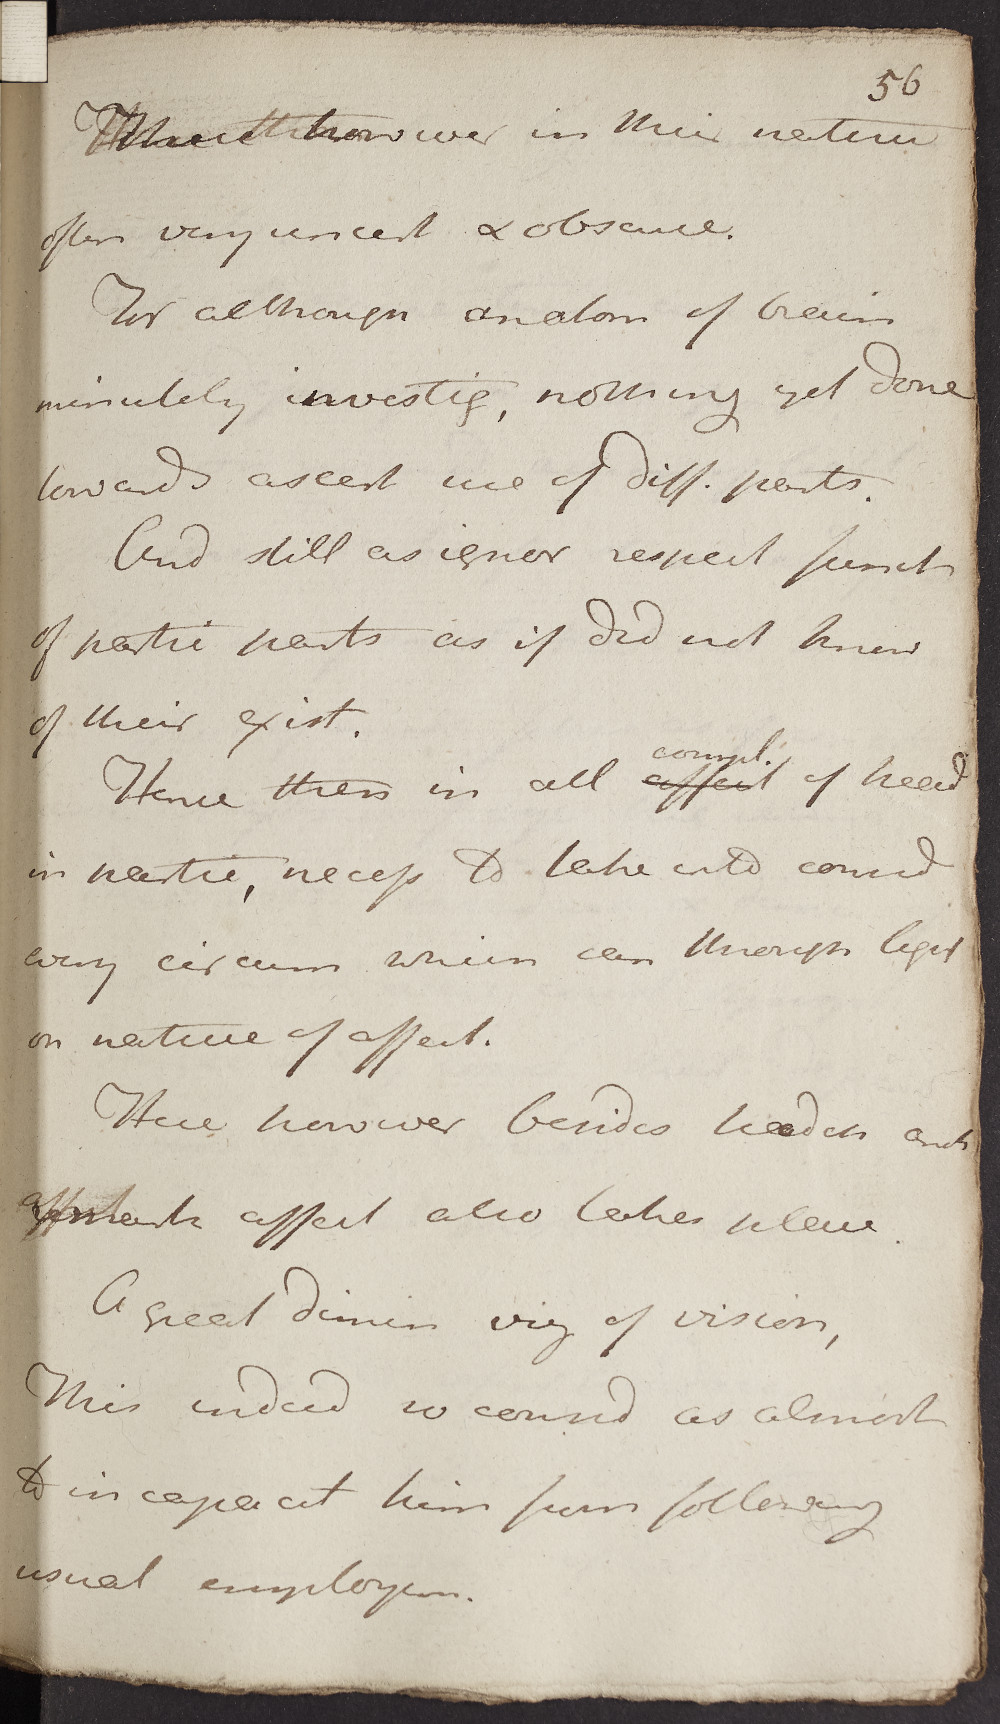 56
These however in their nature
often very uncert & obscure.
For although anatom of brain
minutely investig, nothing yet done
towards ascert use of diff. parts.
And still as ignor respect funct
of partic parts as if did not know
of their exist.
Hence there in all compl. affect of head
in partic, necess to take into consid
every circum which can through light
on nature of affect.
Here however besides headach and
affect also takes place.
A great dimin vig of vision,
This indeed so consid as almost
to incapacit him from following
usual employm.